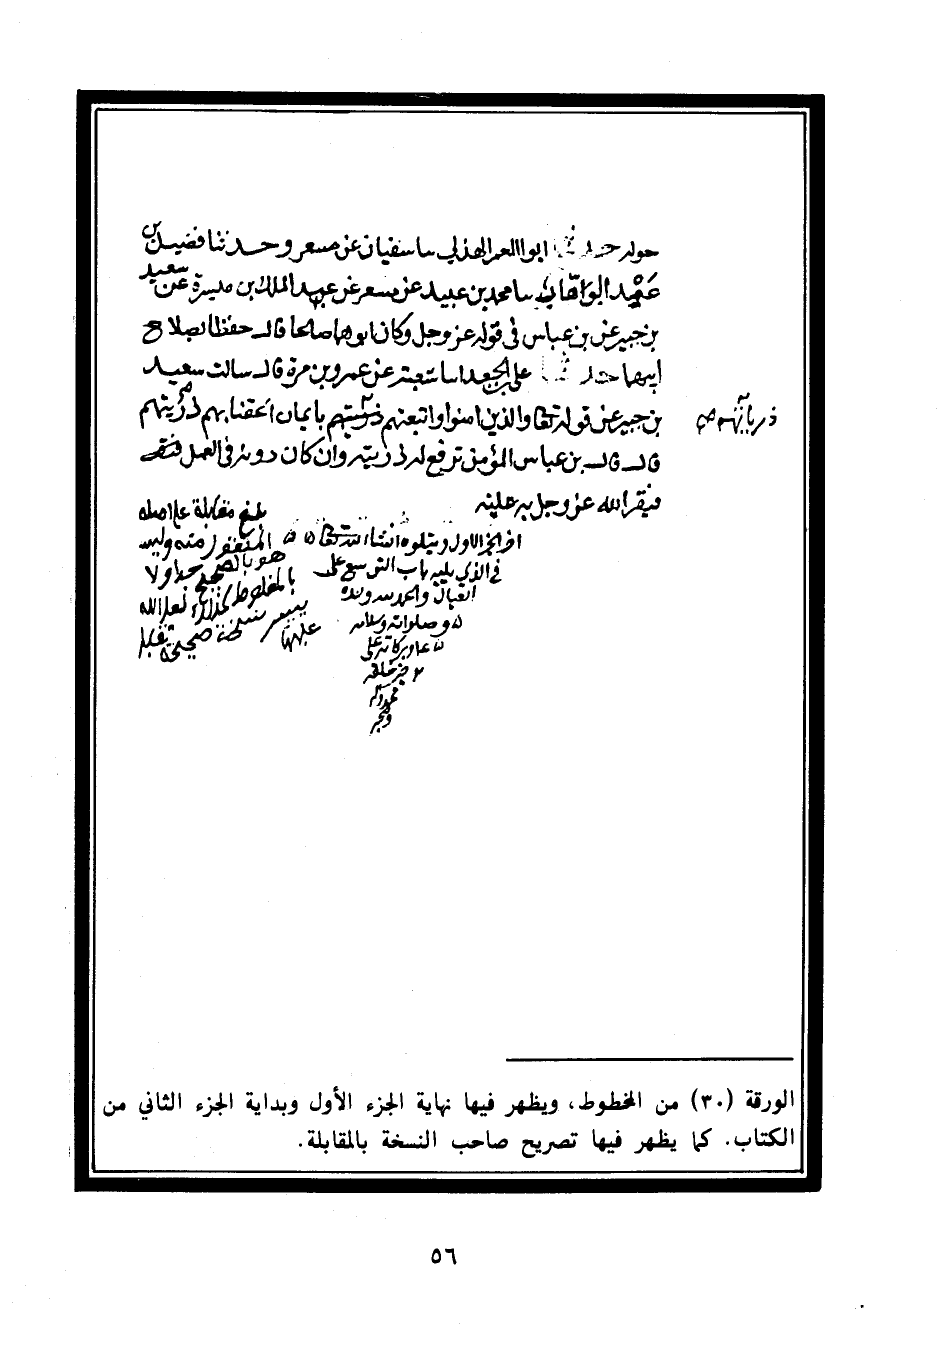 حوله حدثنا ابو المعمر الهذلي سا سفيان عن مسعر وحدثنا فضيل بن
عبد الوهاب سا محمد بن عبيد عن مسعر عن عبد الملك بن ميسرة عن سعيد
بن جبير عن بن عباس في قوله عز وجل وكان ابوهما صالحا قال حفظا بصلاح
ابيهما حدثنا علي بن الجعد اسا شعبة عن عمرو بن مرة قال سالت سعيد
بن جبير عن قوله تعالى والذين امنوا واتبعتهم ذريتهم بايمان الحقنا بهم ذريتهم
ذرياتهم
قال قال بن عباس المؤمن ترفع له ذريته وان كان دونه في العمل
فيقر الله عز وجل به عينه
بلغ مقابلة على اصله
المنقول منه وليس
هو بالصحيح جدا ولا
بالمغلوط كذلك لعل الله
ييسر نسخة صحيحة تقابل
عليها
اخر الجزء الاول ويتلوه ان شاء الله تعالى
في الذي يليه باب التوسع على
العيال والحمد لله وحده
وصلواته وسلامه
وبركاته على
خير خلقه
محمد وآله
وصحبه
الورقة (٣٠) من المخطوط، ويظهر فيها نهاية الجزء الأول وبداية الجزء الثاني من
الكتاب. كما يظهر فيها تصريح صاحب النسخة بالمقابلة.
٥٦